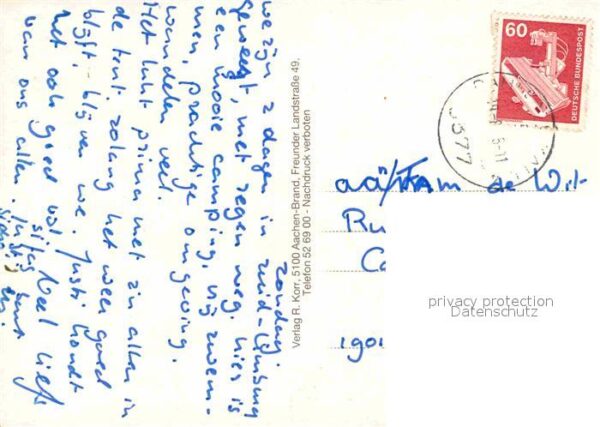 zondag.
we zijn 2 dagen in zuid-Limburg
geweest, met regen weg. hier is
een mooie camping, wij zwem-
men, prachtige omgeving.
wandelen veel.
Het lukt prima met z'n allen in
de tent. zolang het weer goed
blijft, blijven we. Justi houdt
het ook goed vol. Veel liefs
van ons allen.
Verlag R. Korr, 5100 Aachen-Brand, Freunder Landstraße 49,
Telefon 52 69 00 - Nachdruck verboten
60
DEUTSCHE BUNDESPOST
5377
aa/Fam de Wit
Ru
privacy protection
Datenschutz